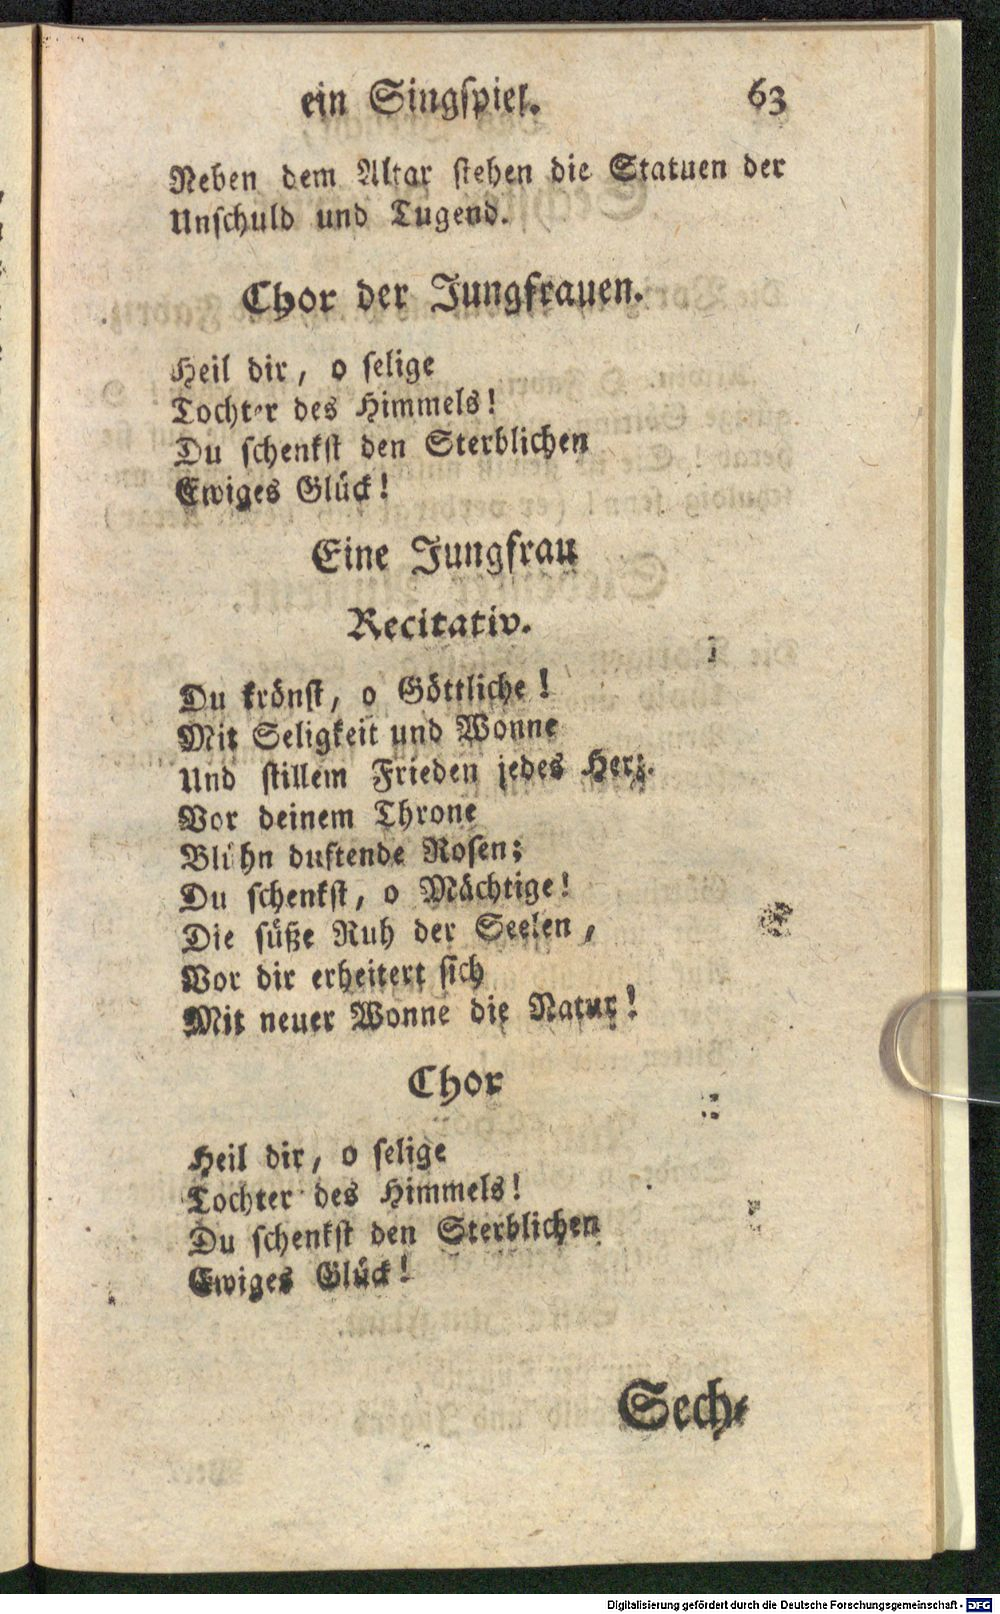 ein Singſpiel. 63
Neben dem Altar ſtehen die Statuen der
Unſchuld und Tugend.
Chor der Jungfrauen.
Heil dir, o ſelige
Tochter des Himmels!
Du ſchenkſt den Sterblichen
Ewiges Glück!
Eine Jungfrau
Recitativ.
Du krönſt, o Göttliche!
Mit Seligkeit und Wonne
Und ſtillem Frieden jedes Herz.
Vor deinem Throne
Blühn duftende Roſen;
Du ſchenkſt, o Mächtige!
Die ſüße Ruh der Seelen,
Vor dir erheitert ſich
Mit neuer Wonne die Natur!
Chor
Heil dir, o ſelige
Tochter des Himmels!
Du ſchenkſt den Sterblichen
Ewiges Glück!
Sech⸗
Digitalisierung gefördert durch die Deutsche Forschungsgemeinschaft - DFG